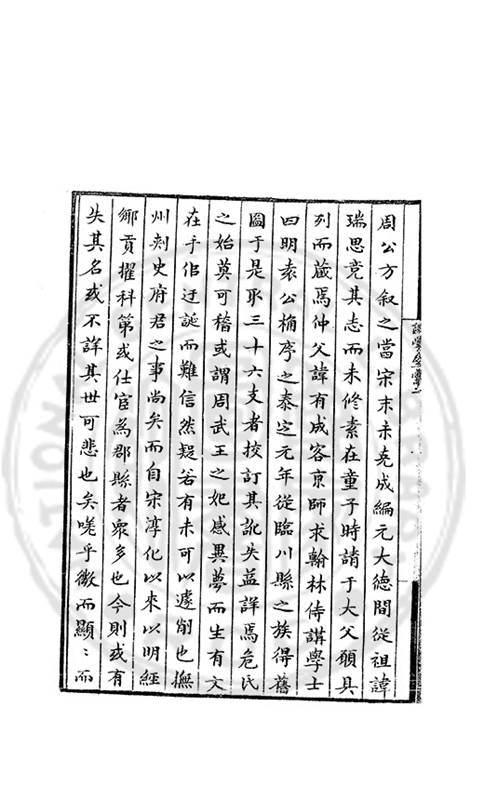 周公方叙之當宋末未克成編元大德間從祖諱
瑞思竟其志而未修素在童子時請于大父願具
列而藏焉仲父諱有成客京師求翰林侍講學士
四明袁公桷序之泰定元年從臨川縣之族得舊
圖于是取三十六支者挍訂其訛失益詳焉危氏
之始莫可稽或謂周武王之妃感異夢而生有文
在手但迂誕而難信然疑若有未可以遽削也撫
州刺史府君之事尚矣而自宋淳化以來以明經
鄉貢擢科第或仕宦為郡縣者衆多也今則或有
失其名或不詳其世可悲也矣嗟乎微而顯〻而